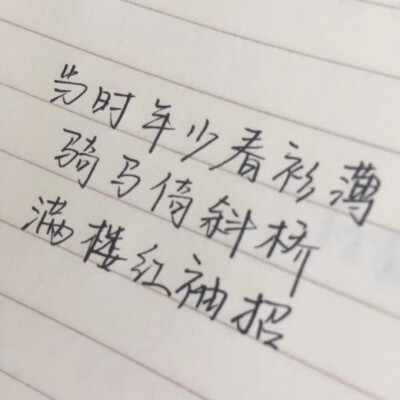 当时年少春衫薄
骑马倚斜桥
满楼红袖招